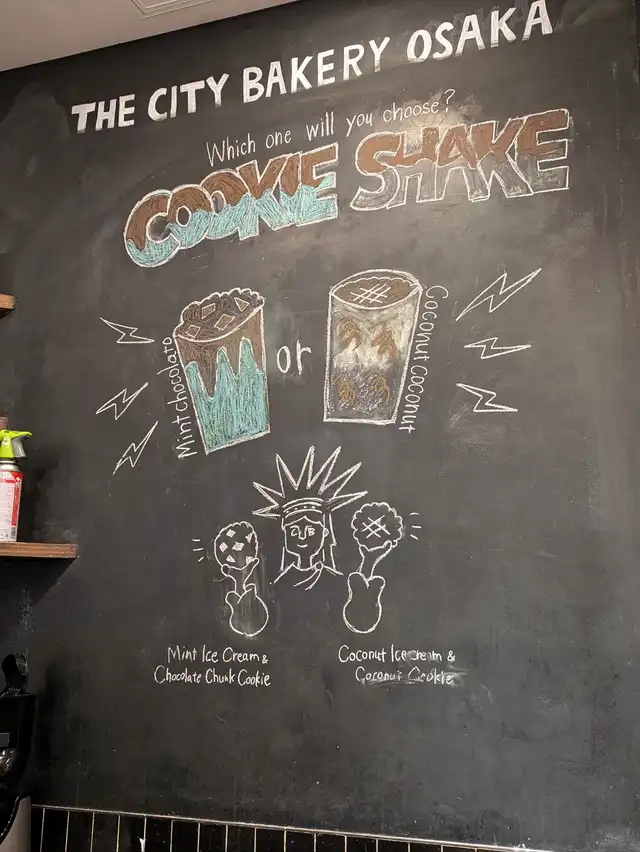 THE CITY BAKERY OSAKA
Which one will you choose?
COOKIE SHAKE
Mintchocolato
or
Coconutcoconut
CB
Mint Ice Cream &
Chocolate Chunk Cookie
Coconut Icecream &
Coconut Cookie